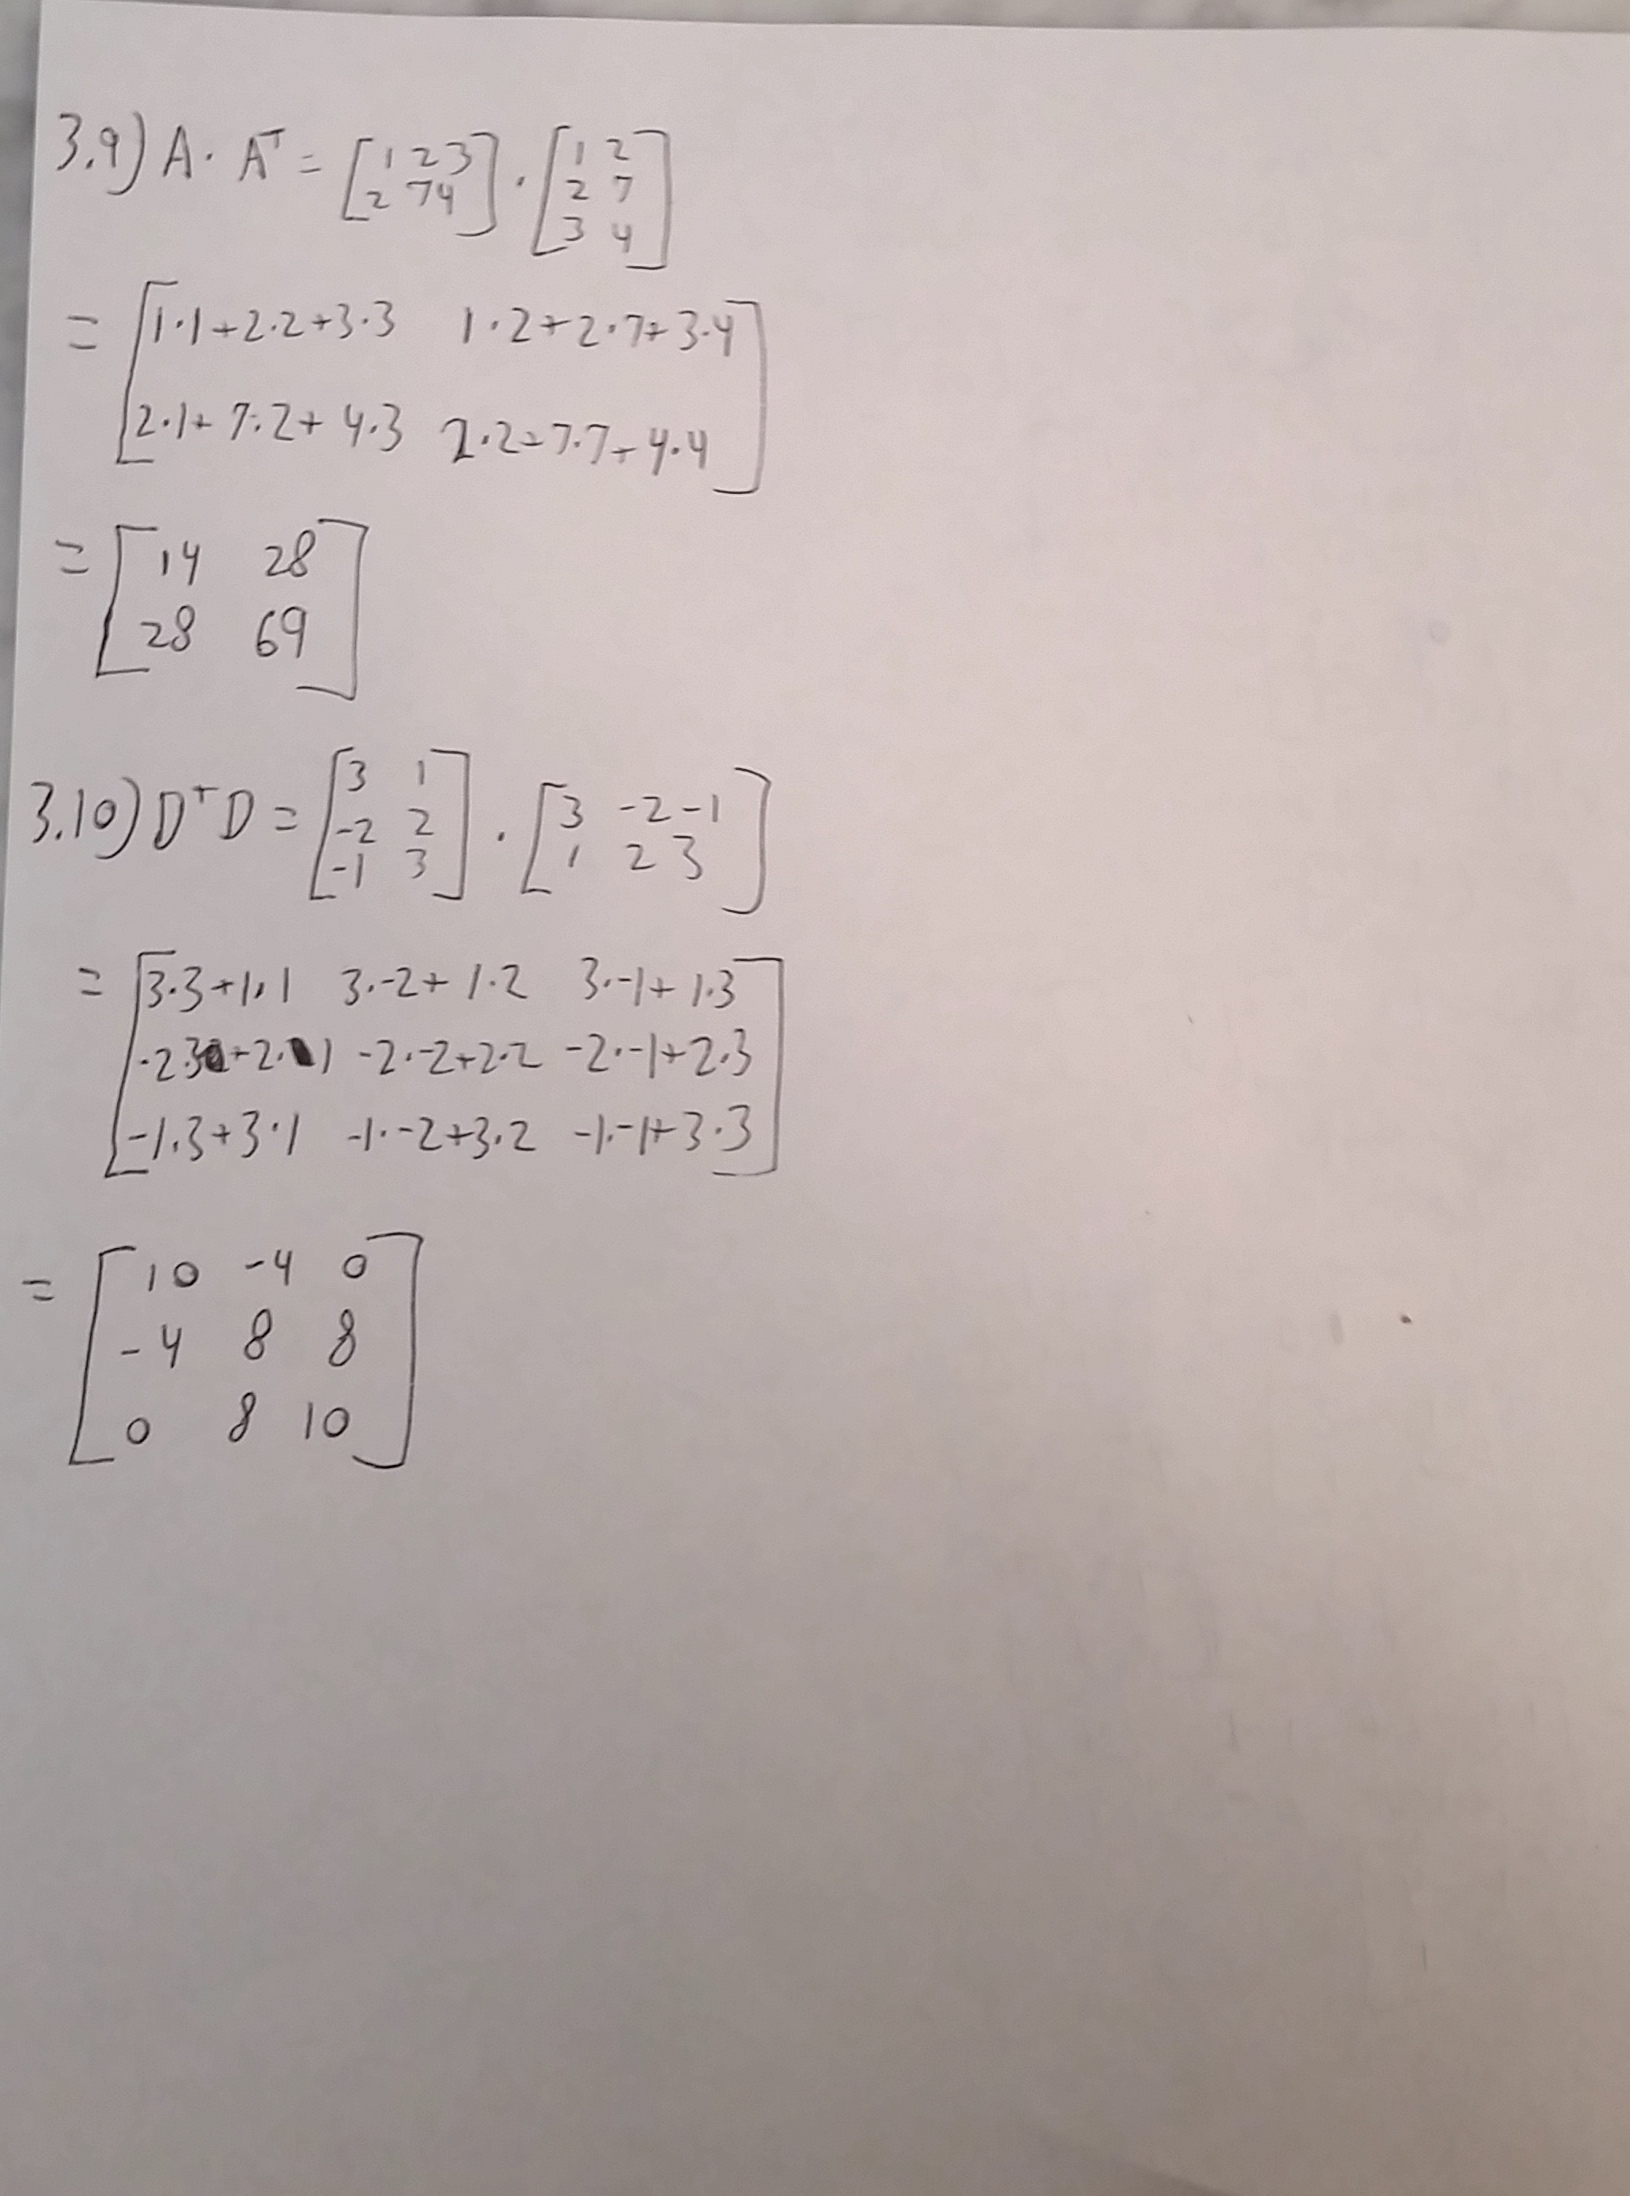 3.9) A · Aᵀ = [1 2 3; 2 7 4] · [1 2; 2 7; 3 4]
= [1·1+2·2+3·3 1·2+2·7+3·4
2·1+7·2+4·3 2·2+7·7+4·4]
= [14 28
28 69]
3.10) DᵀD = [3 1; -2 2; -1 3] · [3 -2 -1; 1 2 3]
= [3·3+1·1 3·-2+1·2 3·-1+1·3
-2·3+2·1 -2·-2+2·2 -2·-1+2·3
-1·3+3·1 -1·-2+3·2 -1·-1+3·3]
= [10 -4 0
-4 8 8
0 8 10]